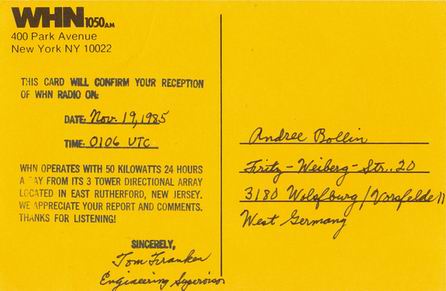 WHN 1050 AM
400 Park Avenue
New York NY 10022
THIS CARD WILL CONFIRM YOUR RECEPTION
OF WHN RADIO ON:
DATE: Nov. 19, 1985
TIME: 0106 UTC
WHN OPERATES WITH 50 KILOWATTS 24 HOURS
A DAY FROM ITS 3 TOWER DIRECTIONAL ARRAY
LOCATED IN EAST RUTHERFORD, NEW JERSEY.
WE APPRECIATE YOUR REPORT AND COMMENTS.
THANKS FOR LISTENING!
SINCERELY,
Tom Franker
Engineering Supervisor
Andree Bollin
Fritz-Weiberg-Str. 20
3180 Wolofburg / Vorsfelde 11
West Germany